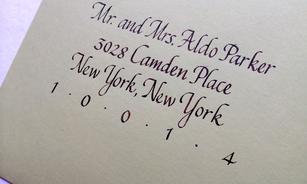 Mr. and Mrs. Aldo Parker
3028 Camden Place
New York, New York
1 · 0 · 0 · 1 · 4